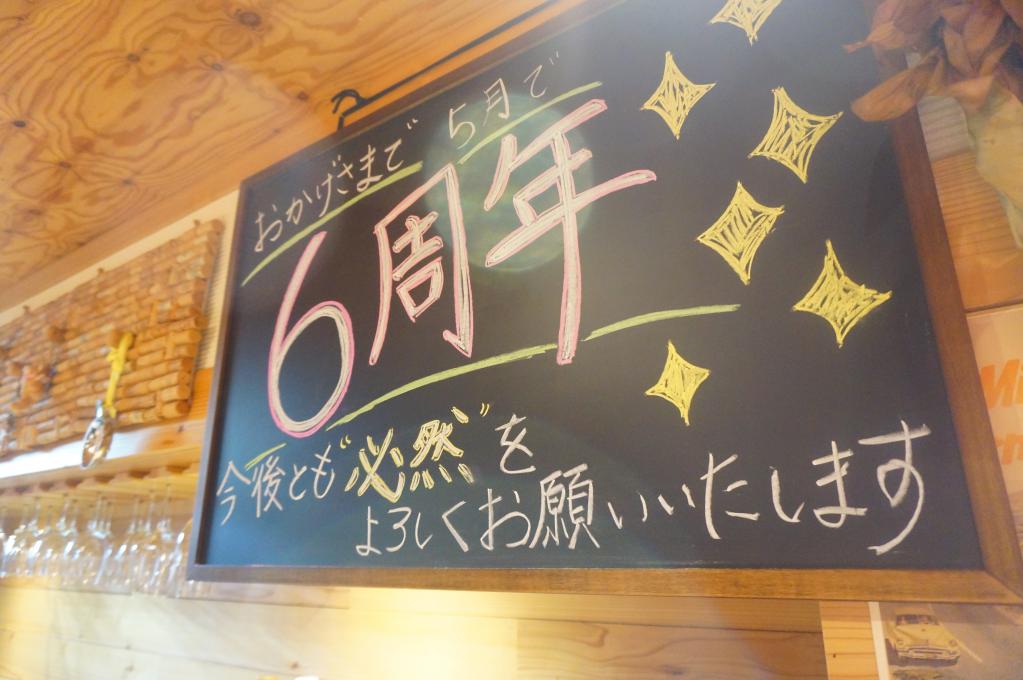 おかげさまで 5月で
6周年
今後とも"必然"を
よろしくお願いいたします